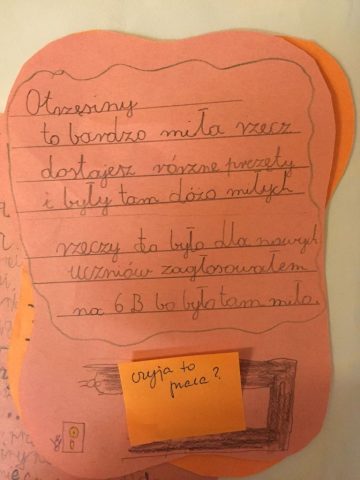 Otrzęsiny
to bardzo miła rzecz
dostajesz rórzne prezęty
i były tam dóżo miłych
rzeczy to było dla nowych
uczniów zagłosowałem
na 6B bo było tam miło.
czyja to
praca?